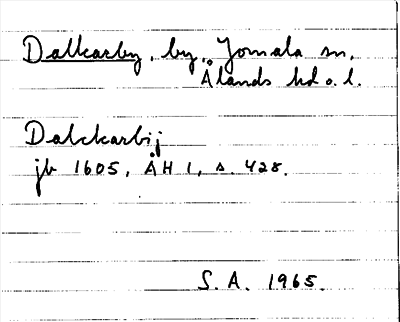 Dalkarby, by, Jomala sn,
Ålands hd o. l.
Dalckarbij
jb 1605, ÅH 1, s. 428.
S. A. 1965.